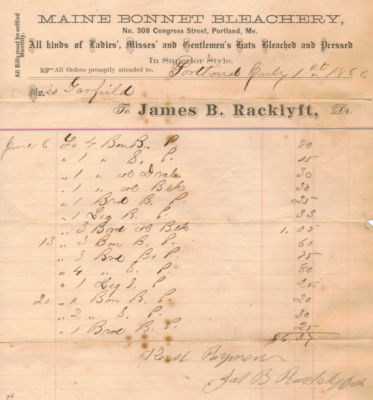 MAINE BONNET BLEACHERY,
No. 308 Congress Street, Portland, Me.
All kinds of Ladies', Misses' and Gentlemen's Hats Bleached and Pressed
In Superior Style.
All Bills may be settled Monthly.
All Orders promptly attended to.
Portland July 1st 186
Garfield
To James B. Racklyft, Dr.
June 6 To 4 Bon B. P. 80
" 1 " S. P. 15
" 1 " 30
" 1 " 30
" 1 Bro B. P. 25
" 1 Leg B. P. 35
" 3 Bro 1.05
13 " 3 Bon B. P. 60
" 3 Bro B. P. 75
" 4 " S. P. 80
" 1 Leg S. P. 25
20 " 1 Bon B. P. 20
" 2 " S. P. 30
" 1 Bro B. P. 25
Recd Paymen
B Racklyft